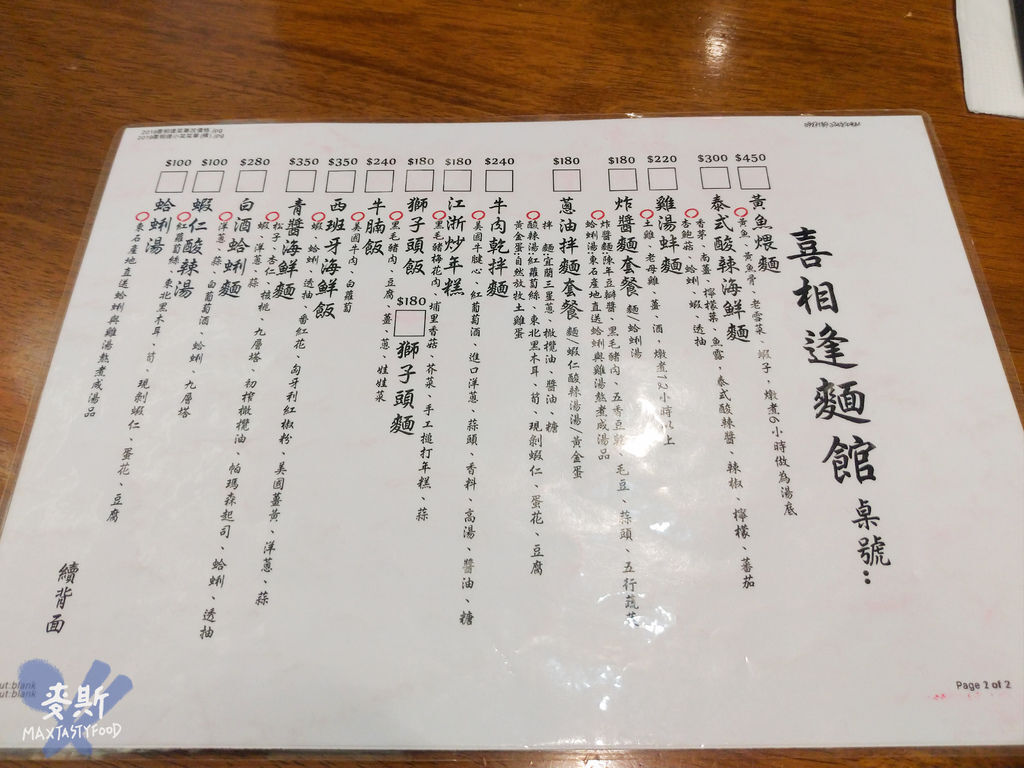 喜相逢麵館 桌號：
$450
黃魚煨麵
黃魚、黃魚骨、老雪菜、蝦子，燉煮6小時做為湯底
$300
泰式酸辣海鮮麵
香茅、南薑、檸檬葉、魚露，泰式酸辣醬、辣椒、檸檬、蕃茄
杏鮑菇、蛤蜊、蝦、透抽
$220
雞湯蚌麵
土雞、老母雞、薑、酒，燉煮12小時以上
$180
炸醬麵套餐 麵/蛤蜊湯
炸醬麵陳年豆瓣醬、黑毛豬肉、五香豆乾、毛豆、蒜頭、五行蔬菜
蛤蜊湯東石產地直送蛤蜊與雞湯熬煮成湯品
$180
蔥油拌麵套餐 麵/蝦仁酸辣湯湯/黃金蛋
拌 麵宜蘭三星蔥、橄欖油、醬油、糖
酸辣湯紅蘿蔔絲、東北黑木耳、筍、現剝蝦仁、蛋花、豆腐
黃金蛋自然放牧土雞蛋
$240
牛肉乾拌麵
美國牛腱心、紅葡萄酒、進口洋蔥、蒜頭、香料、高湯、醬油、糖
$180
江浙炒年糕
黑毛豬梅花肉、埔里香菇、芥菜、手工槌打年糕、蒜
$180
獅子頭飯
$180
獅子頭麵
黑毛豬肉、豆腐、薑、蔥、娃娃菜
$240
牛腩飯
美國牛肉、白蘿蔔
$350
西班牙海鮮飯
蝦、蛤蜊、透抽、番紅花、匈牙利紅椒粉、美國薑黃、洋蔥、蒜
$350
青醬海鮮麵
松子、杏仁、核桃、九層塔、初榨橄欖油、帕瑪森起司、蛤蜊、透抽
蝦、洋蔥、蒜
$280
白酒蛤蜊麵
洋蔥、蒜、白葡萄酒、蛤蜊、九層塔
$100
蝦仁酸辣湯
紅蘿蔔絲、東北黑木耳、筍、現剝蝦仁、蛋花、豆腐
$100
蛤蜊湯
東石產地直送蛤蜊與雞湯熬煮成湯品
續背面
Page 2 of 2
ut:blank
ut:blank
麥斯
MAXTASTYFOOD